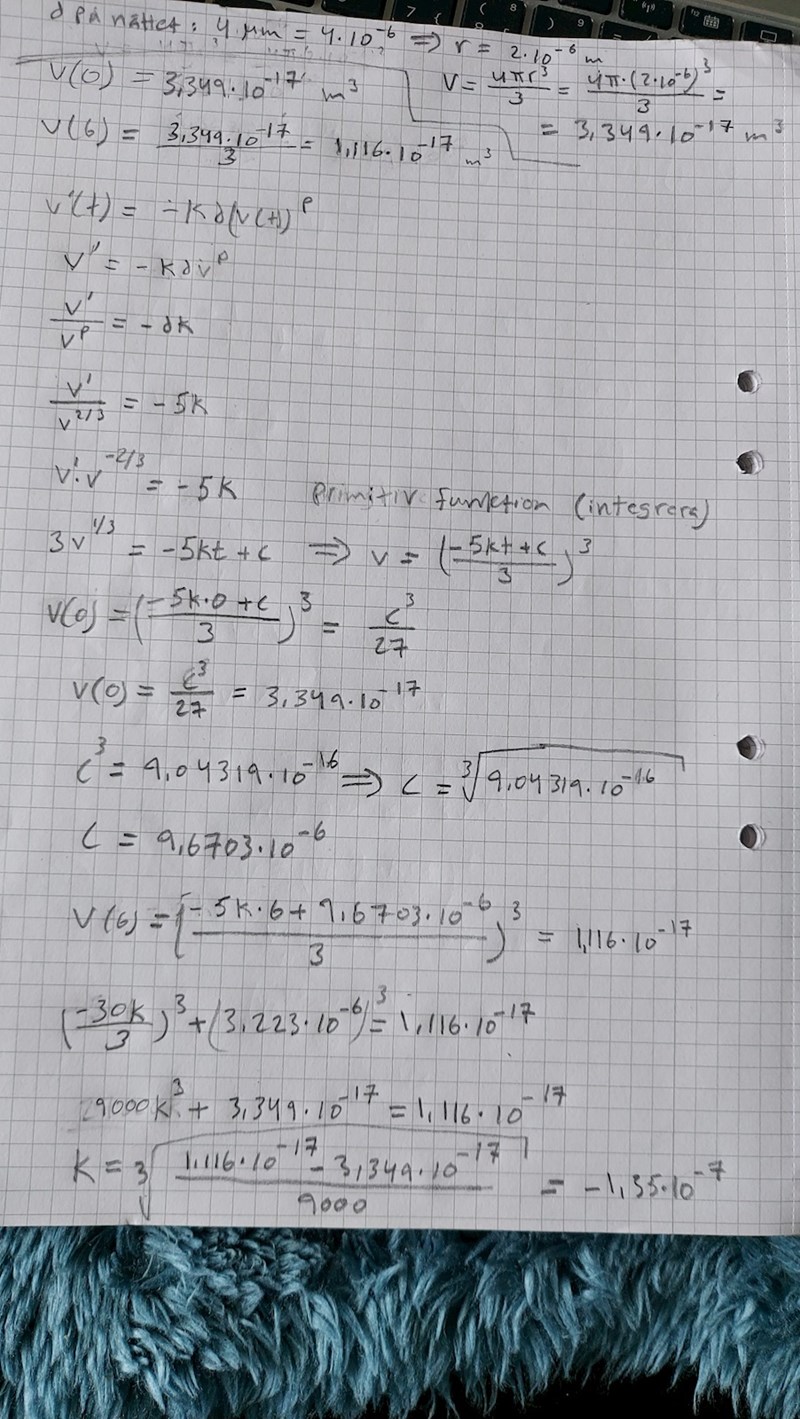 d på nätet: 4 μm = 4·10⁻⁶ ⇒ r = 2·10⁻⁶ m
V(0) = 3,349·10⁻¹⁷ m³
V = 4πr³/3 = 4π·(2·10⁻⁶)³/3 =
= 3,349·10⁻¹⁷ m³
V(6) = 3,349·10⁻¹⁷/3 = 1,116·10⁻¹⁷ m³
v'(t) = -k∂(v(t))ᴾ
v' = -k∂vᴾ
v'/vᴾ = -∂k
v'/v^(2/3) = -5k
v'·v^(-2/3) = -5k primitiv funktion (integrera)
3v^(1/3) = -5kt + c ⇒ v = ((-5kt + c)/3)³
V(0) = ((-5k·0 + c)/3)³ = c³/27
V(0) = c³/27 = 3,349·10⁻¹⁷
c³ = 9,04319·10⁻¹⁶ ⇒ c = ³√(9,04319·10⁻¹⁶)
C = 9,6703·10⁻⁶
V(6) = ((-5k·6 + 9,6703·10⁻⁶)/3)³ = 1,116·10⁻¹⁷
(-30k/3)³ + (3,223·10⁻⁶)³ = 1,116·10⁻¹⁷
9000k³ + 3,349·10⁻¹⁷ = 1,116·10⁻¹⁷
k = ³√((1,116·10⁻¹⁷ - 3,349·10⁻¹⁷)/9000) = -1,35·10⁻⁷